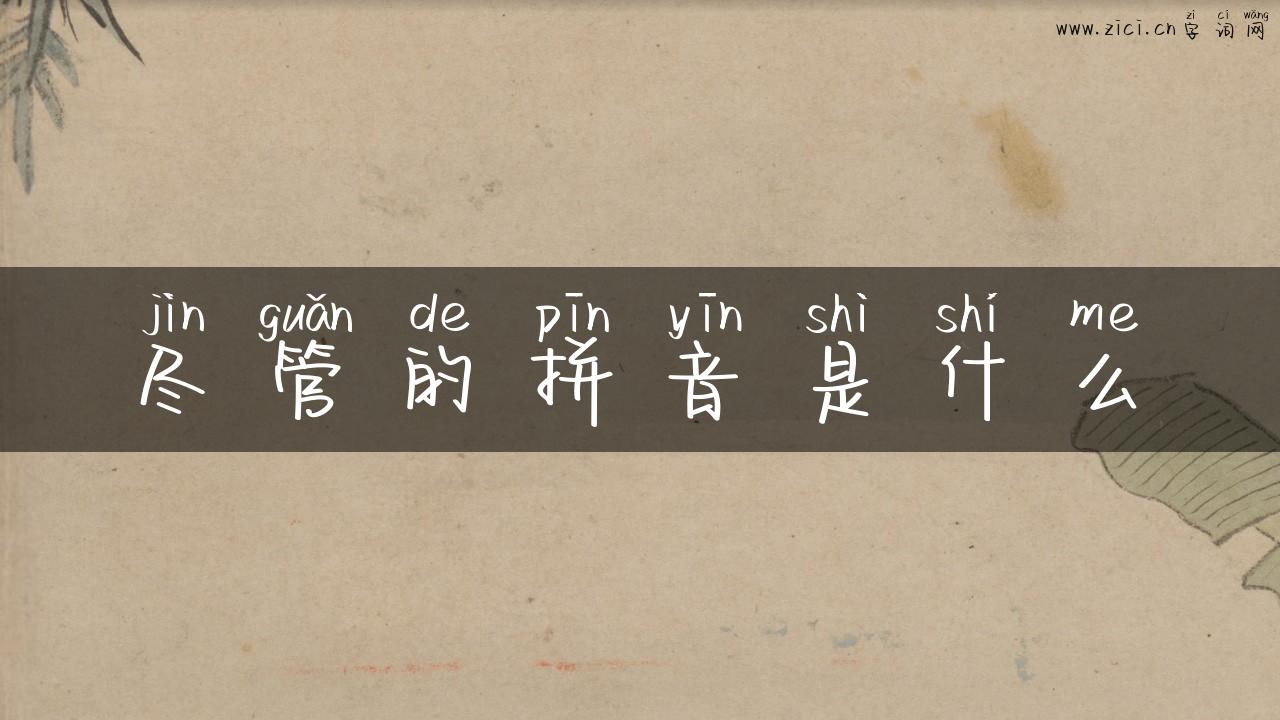 zì cí wǎng
www.zici.cn 字词网
jìn guǎn de pīn yīn shì shí me
尽管的拼音是什么